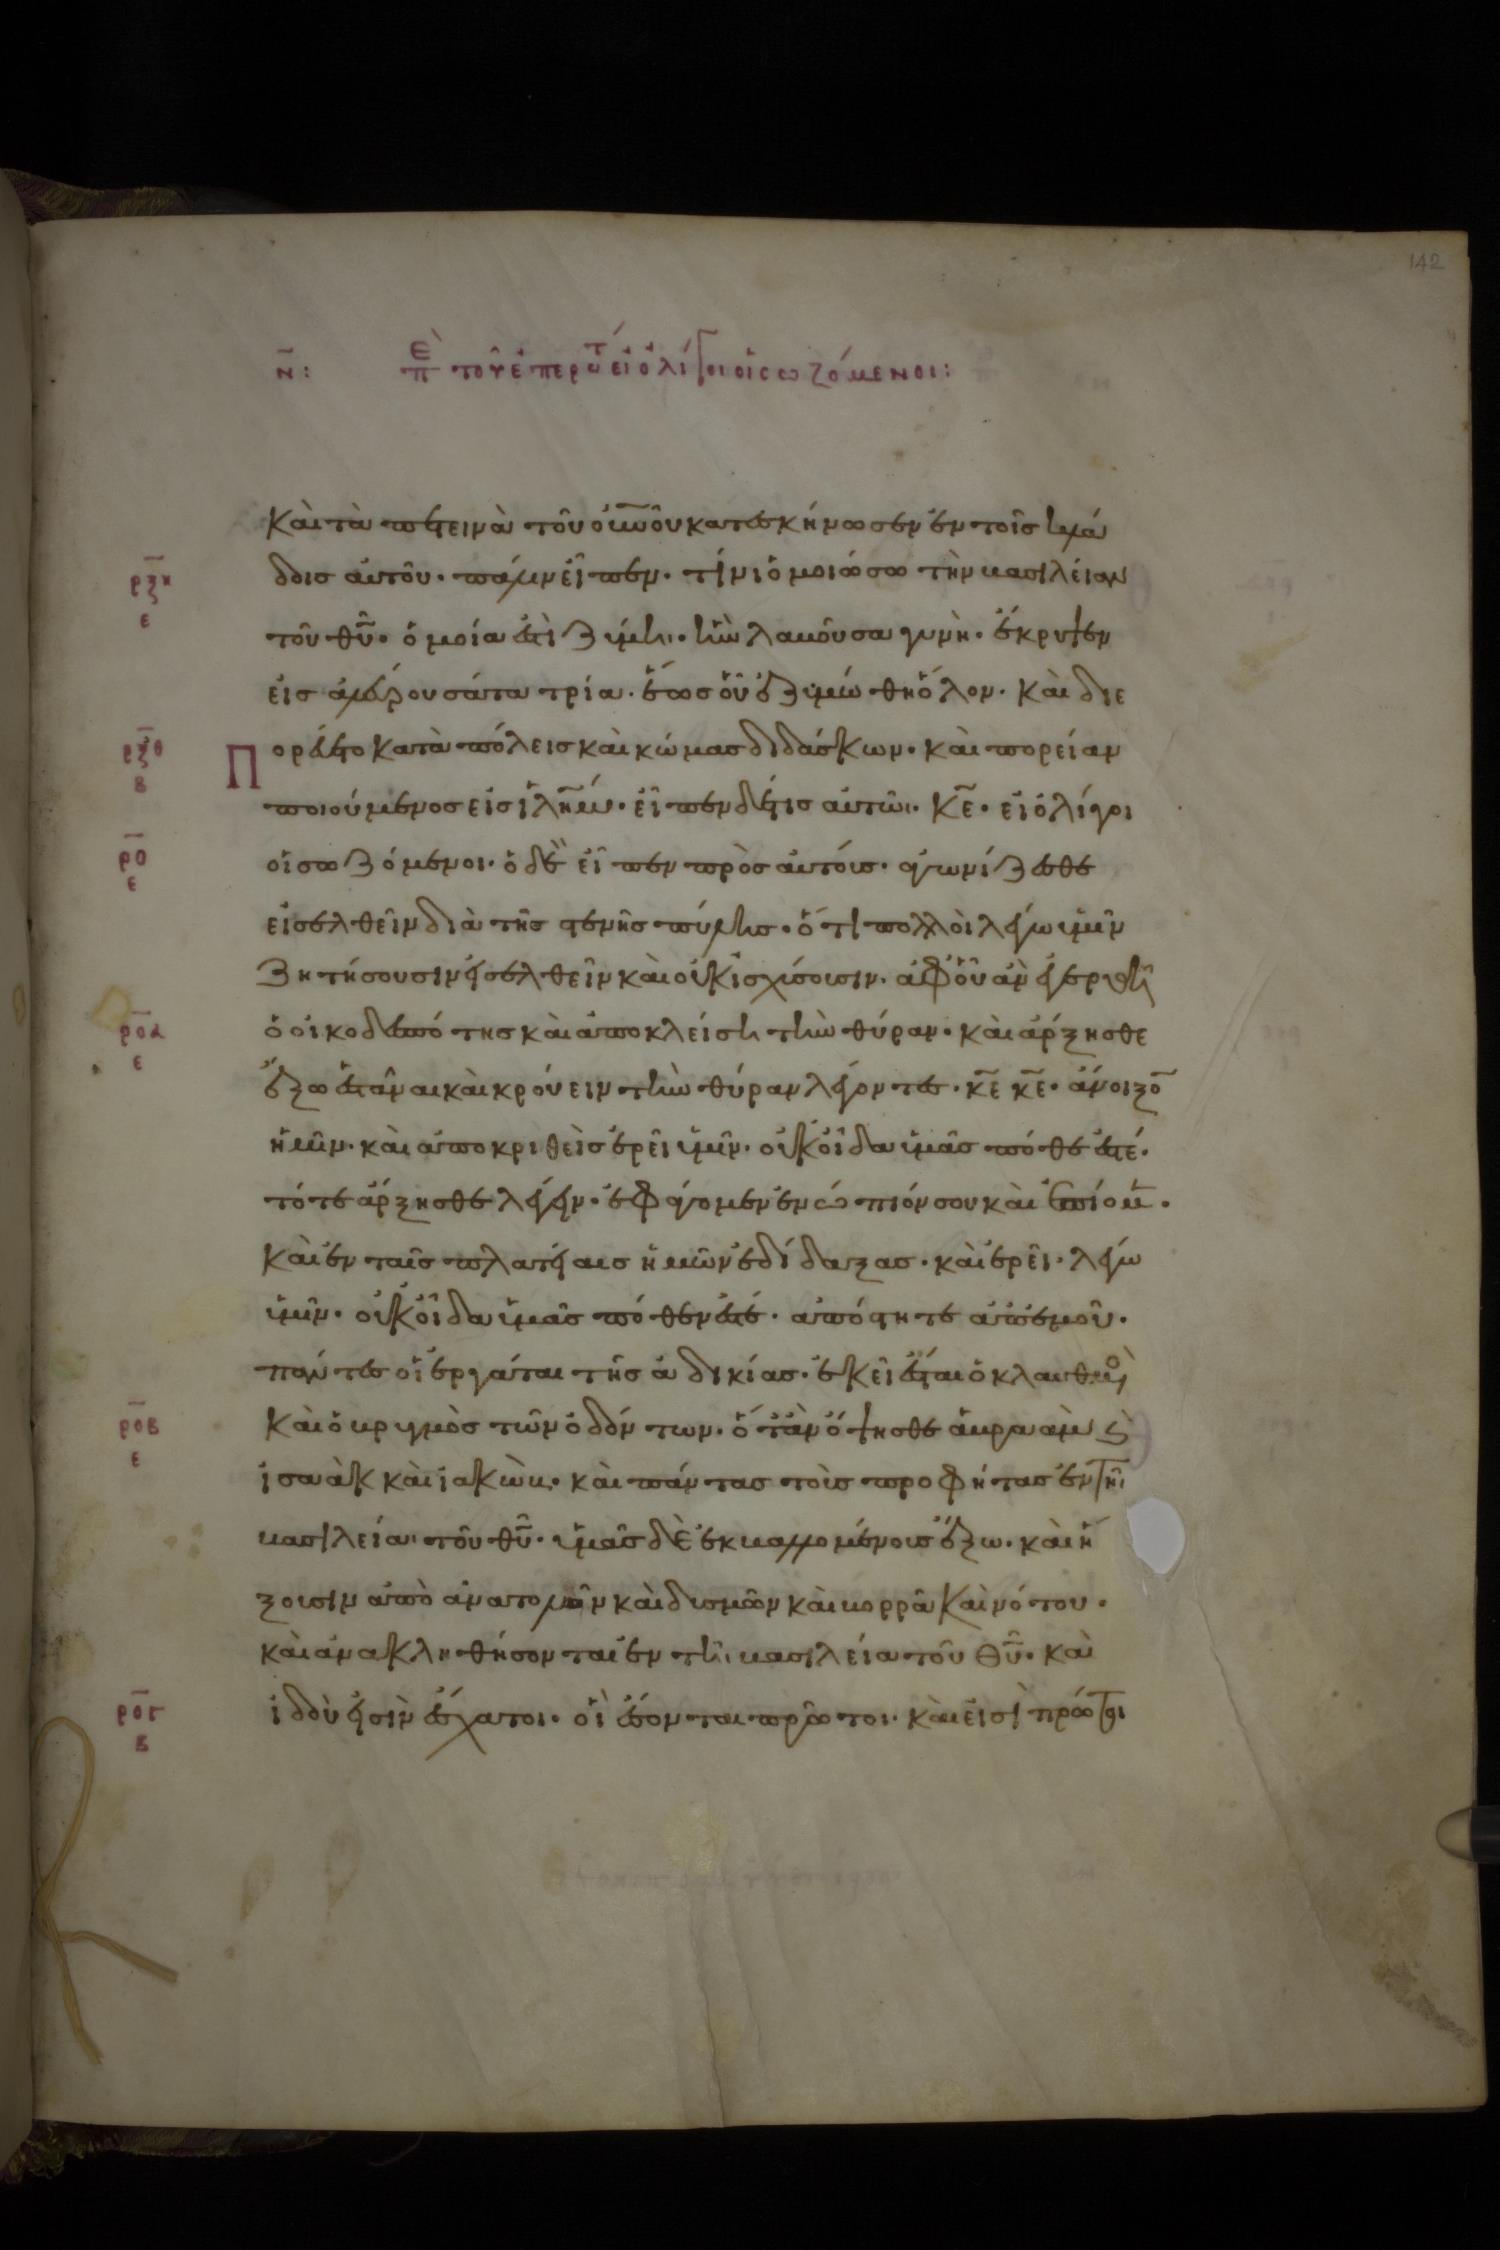 142
ν̄: πὲ τοῦ ἐπερωτ́ εἰ ὀλίγοι οἱ σωζόμενοι:
καὶ τὰ πετεινὰ τοῦ οὐν̅οῦ κατεσκήνωσεν ἐν τοῖς κλά
ρξη δοις αὐτοῦ· πάλιν εἶπεν· τίνι ὁμοιώσω τὴν βασιλείαν
ε τοῦ θυ̅· ὁμοία ἐστὶ ζύμηι· ἣν λαβοῦσα γυνὴ· ἔκρυψεν
εἰς ἀλεύρου σάτα τρία· ἕως οὗ ἐζυμώθη ὅλον· καὶ διε
ρξθ β Πορεύετο κατὰ πόλεις καὶ κώμας διδάσκων· καὶ πορείαν
ποιούμενος εἰς ἱλημ̅· εἶπεν δέ τις αὐτῶι· κε̅· εἰ ὀλίγοι
ρο ε οἱ σωζόμενοι· ὁ δὲ εἶπεν πρὸς αὐτούς· ἀγωνίζεσθε
εἰσελθεῖν διὰ τῆς στενῆς πύλης· ὅτι πολλοὶ λέγω ὑμῖν
ζητήσουσιν εἰσελθεῖν καὶ οὐκ ἰσχύσουσιν· ἀφ' οὗ ἂν ἐγερθῆ
ροα ε ὁ οἰκοδεσπότης καὶ ἀποκλείση τὴν θύραν· καὶ ἄρξησθε
ἔξω ἑστάναι καὶ κρούειν τὴν θύραν λέγοντες· κε̅ κε̅· ἄνοιξο̅
ἡμῖν· καὶ ἀποκριθεὶς ἐρεῖ ὑμῖν· οὐκ οἶδα ὑμᾶς πόθεν ἐστέ·
τότε ἄρξησθε λέγειν· ἐφάγομεν ἐνώπιόν σου καὶ ἐπίομ̅·
καὶ ἐν ταῖς πλατείαις ἡμῶν ἐδίδαξας· καὶ ἐρεῖ· λέγω
ὑμῖν· οὐκ οἶδα ὑμᾶς πόθεν ἐστέ· ἀπόστητε ἀπ' ἐμοῦ·
πάντες οἱ ἐργάται τῆς ἀδικίας· ἐκεῖ ἔσται ὁ κλαυθμὸ
ροβ ε καὶ ὁ βρυγμὸς τῶν ὀδόντων· ὅταν ὄψησθε ἀβραὰμ ϗ
ἰσαὰκ καὶ ἰακὼβ· καὶ πάντας τοὺς προφήτας ἐν τῆι
βασιλεία τοῦ θυ̅· ὑμᾶς δὲ ἐκβαλλομένους ἔξω· καὶ ἥ
ξουσιν ἀπὸ ἀνατολῶν καὶ δυσμῶν καὶ βορρᾶ καὶ νότου·
καὶ ἀνακληθήσονται ἐν τῆι βασιλεία τοῦ θυ̅· καὶ
ρογ β ἰδοὺ εἰσὶν ἔσχατοι· οἳ ἔσονται πρῶτοι· καὶ εἰσὶ πρῶτοι